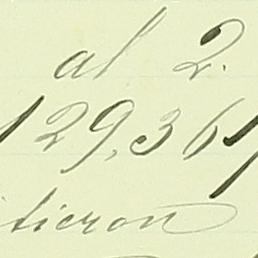 al 2.
129,361
ticron